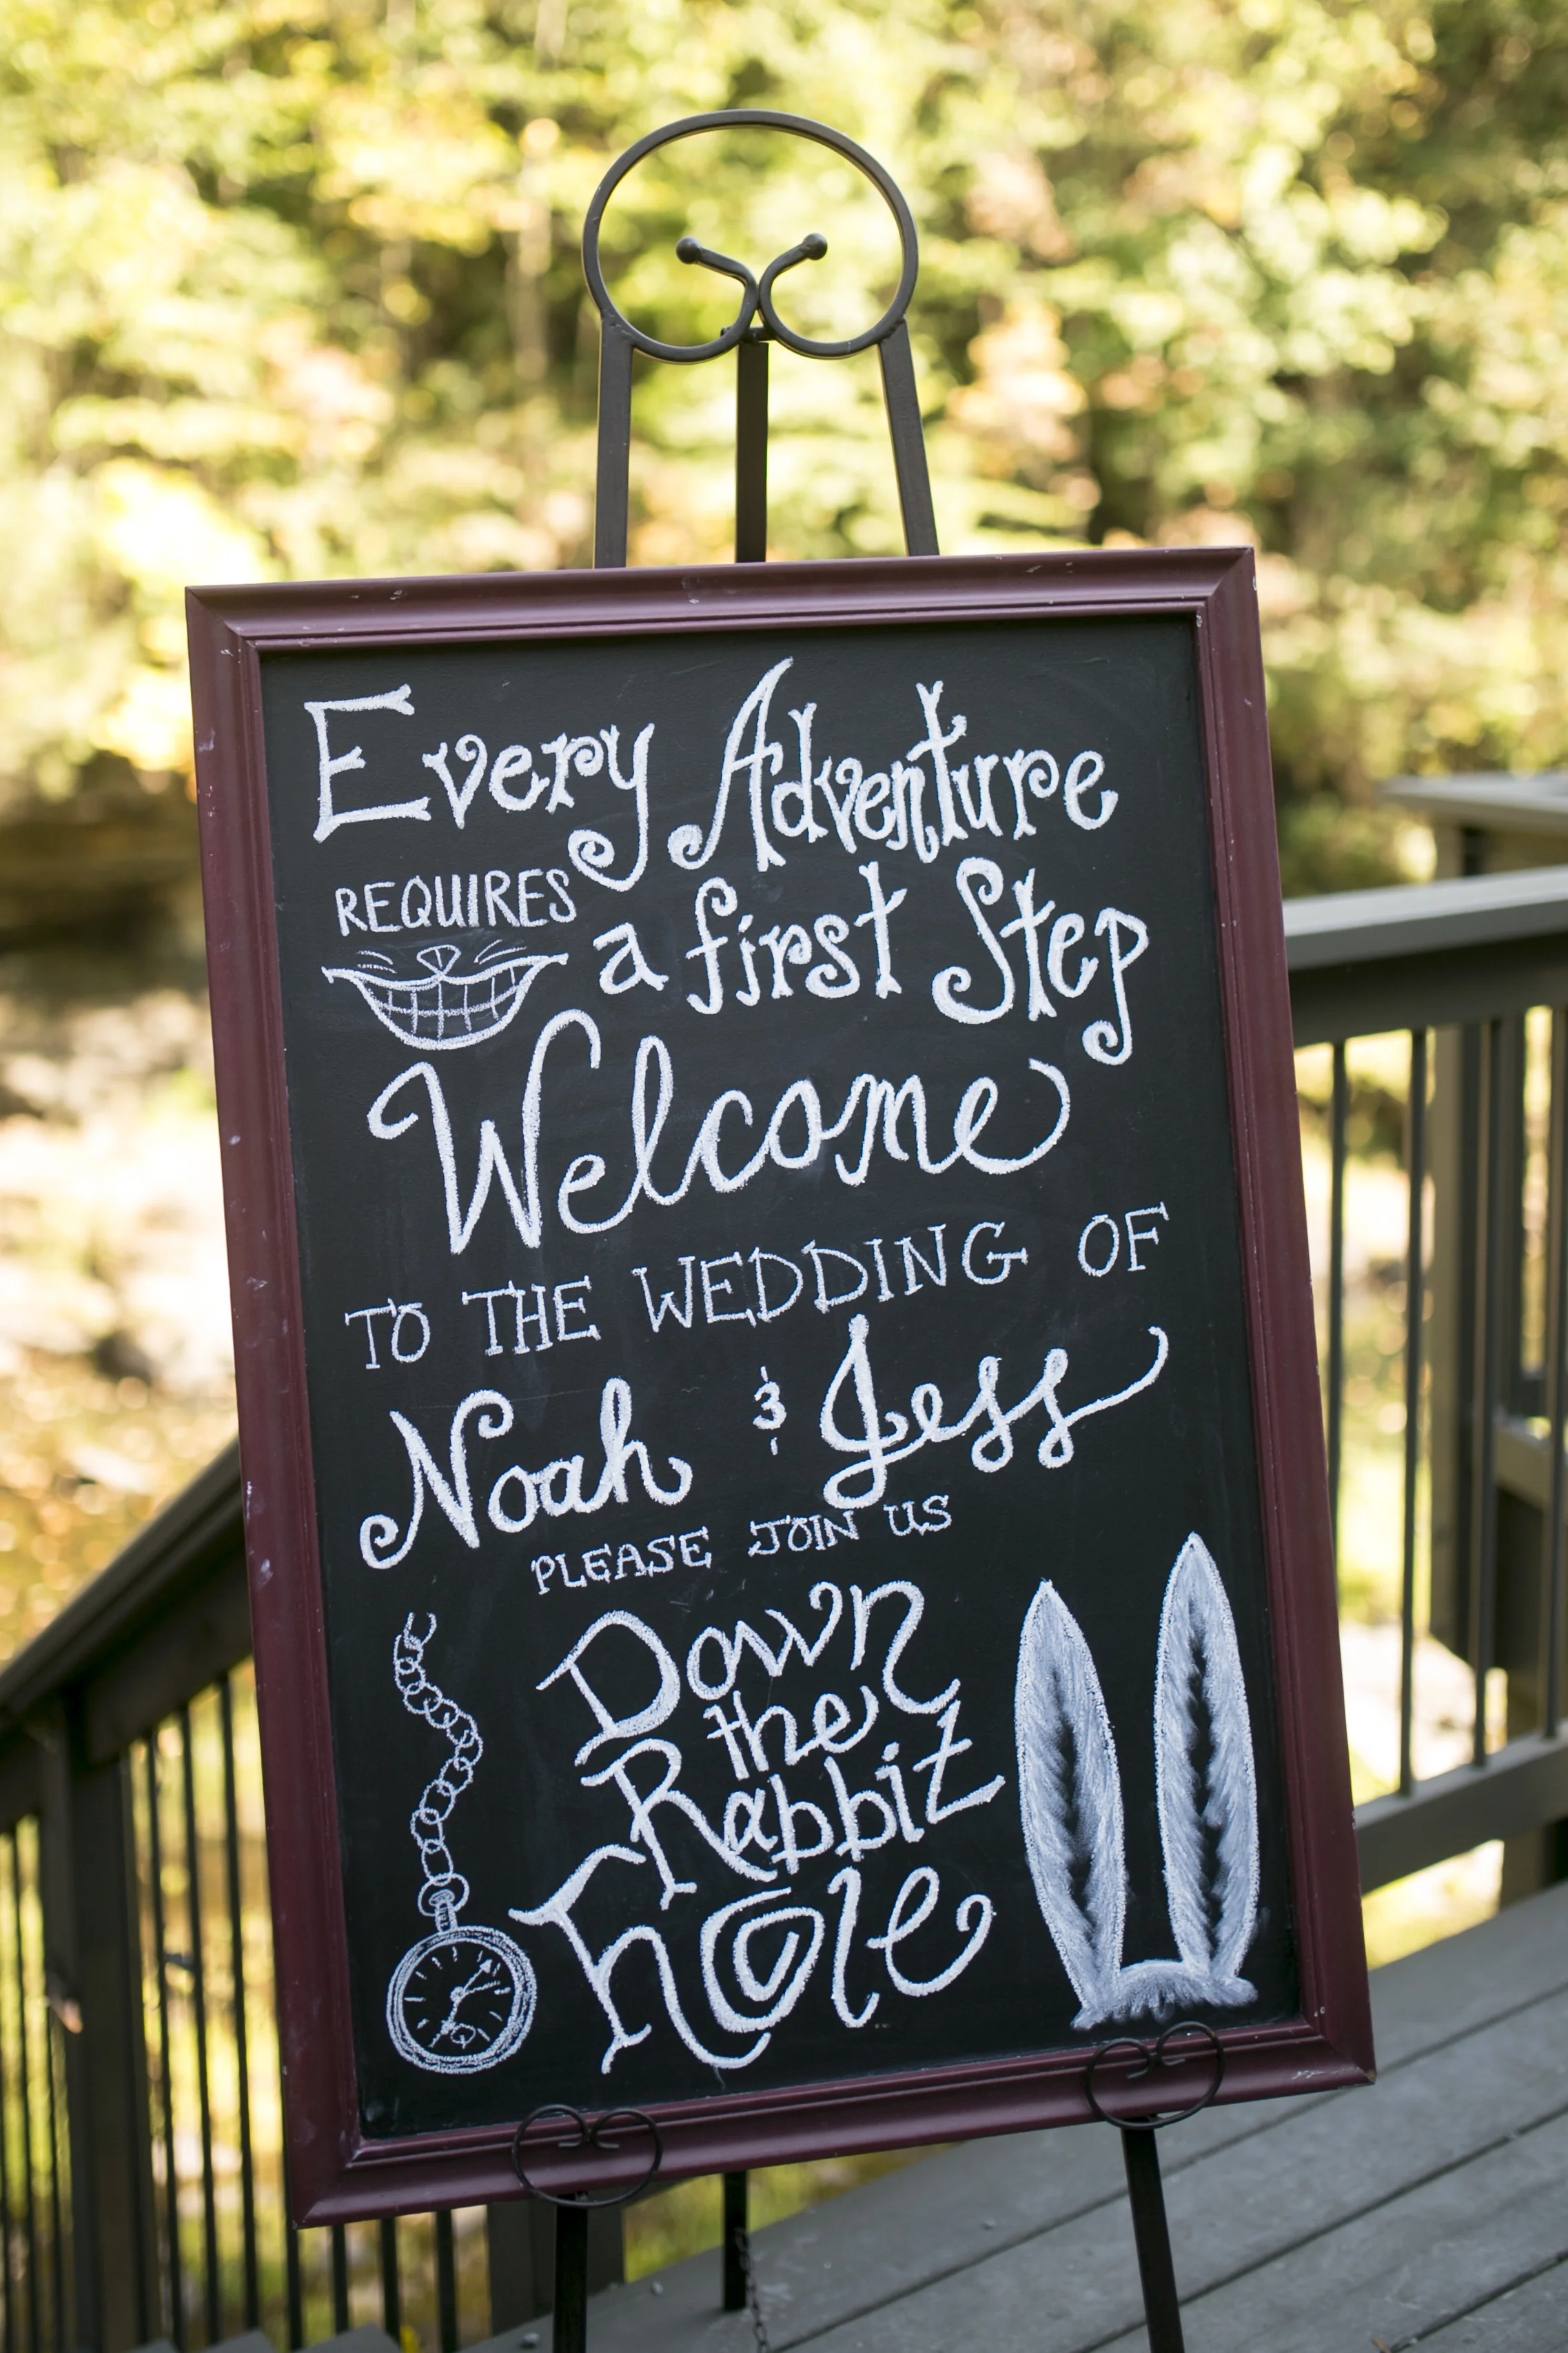 Every Adventure
REQUIRES a first Step
Welcome
TO THE WEDDING OF
Noah & Jess
PLEASE JOIN US
Down
the
Rabbit
hole